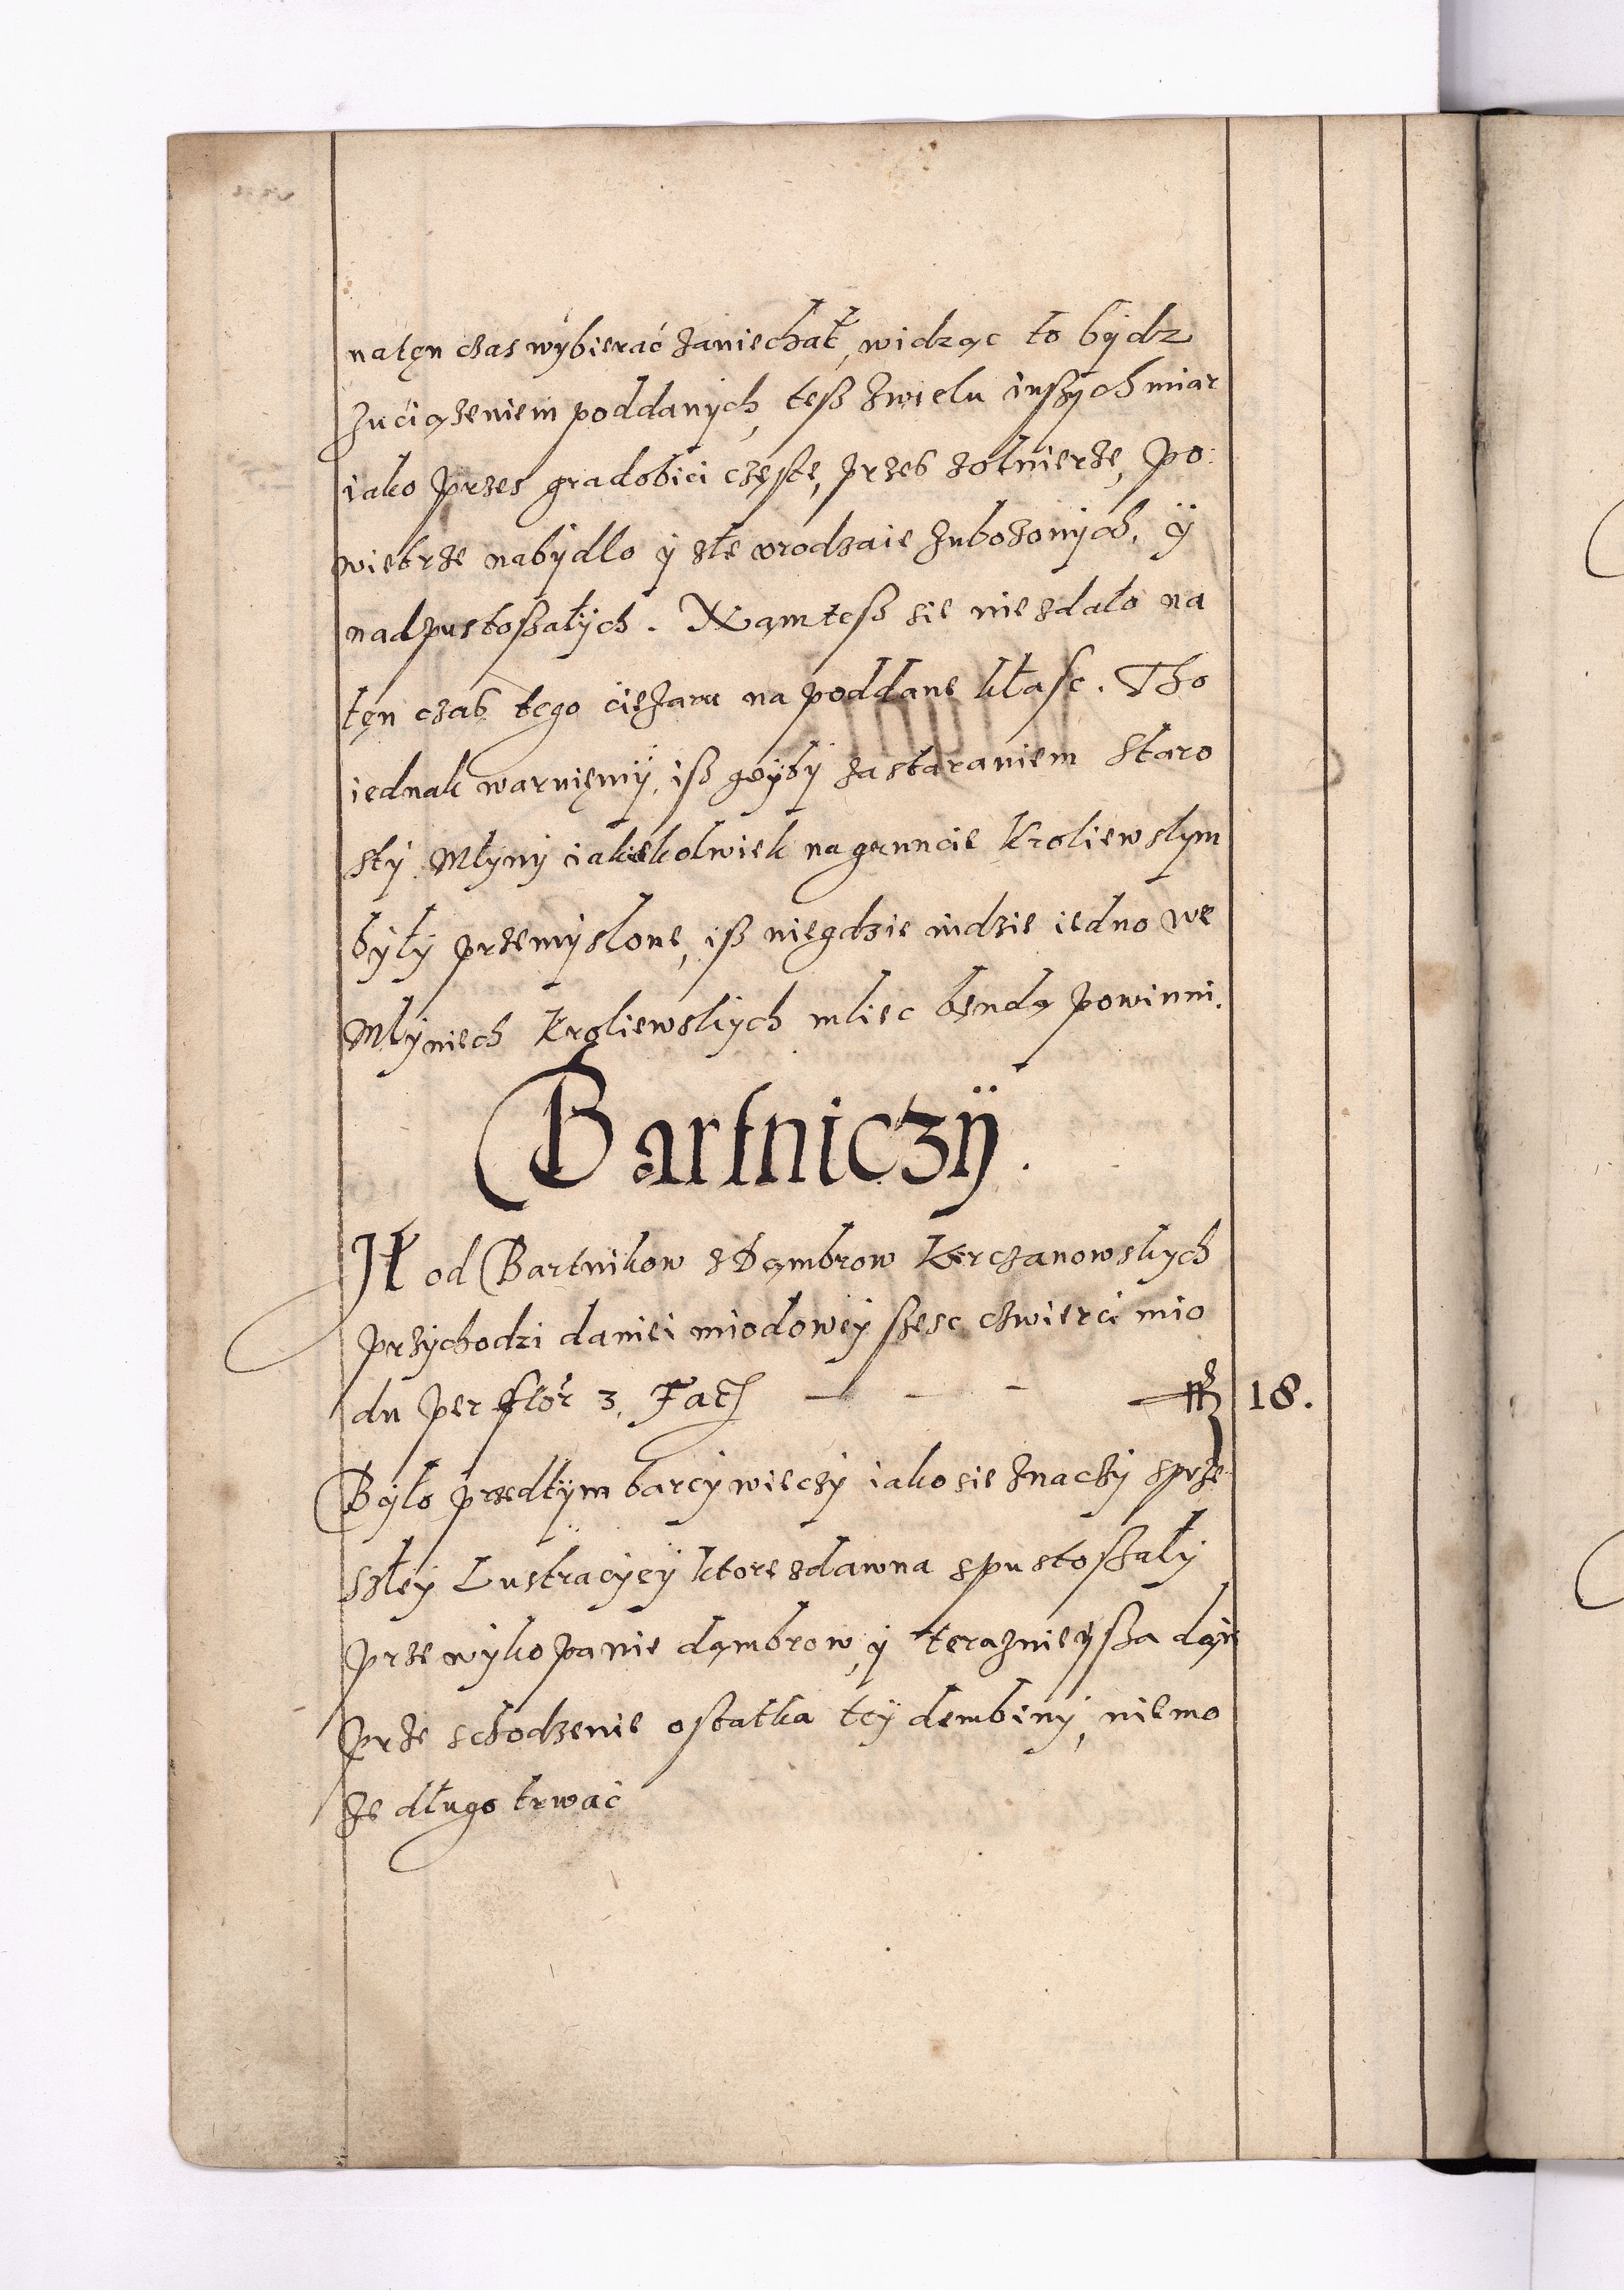 natęn czas wybierać zaniechał, widząc to bydz
zuciązeniem poddanych, tesz zwielu inszych miar
iako przes gradobici częste, przes zołnierze, po
wietrze nabydlo y złe vrodzaie zubozonych, y
nadpustoszałych. Nam tesz sie nie zdało na
tęn czas tego cięzaru na poddane kłasc. Tho
iednak waruięmy, isz gdyby zastaraniem Staro
sty Młyny iakiekolwiek nagruncie Kroliewskym
były przemyslone, isz niegdzie indzie iedno we
Młyniech Kroliewskych mliec bęndą powinni.
Bartniczy.
It od Bartnikow z Dąmbrow Kerczanowskych
przychodzi daniei miodowey szesc czwierci mio
du per flor 3. Facit — — — fl 18.
Było przedtym barcy wieczy iako sie znaczy z prze
szley Lustracyey ktore zdawna spustoszały
prze wykopanie dąmbrow, y teraznieysza dąn
prze schodzenie ostatka tey dembiny, niemo
ze długo trwać